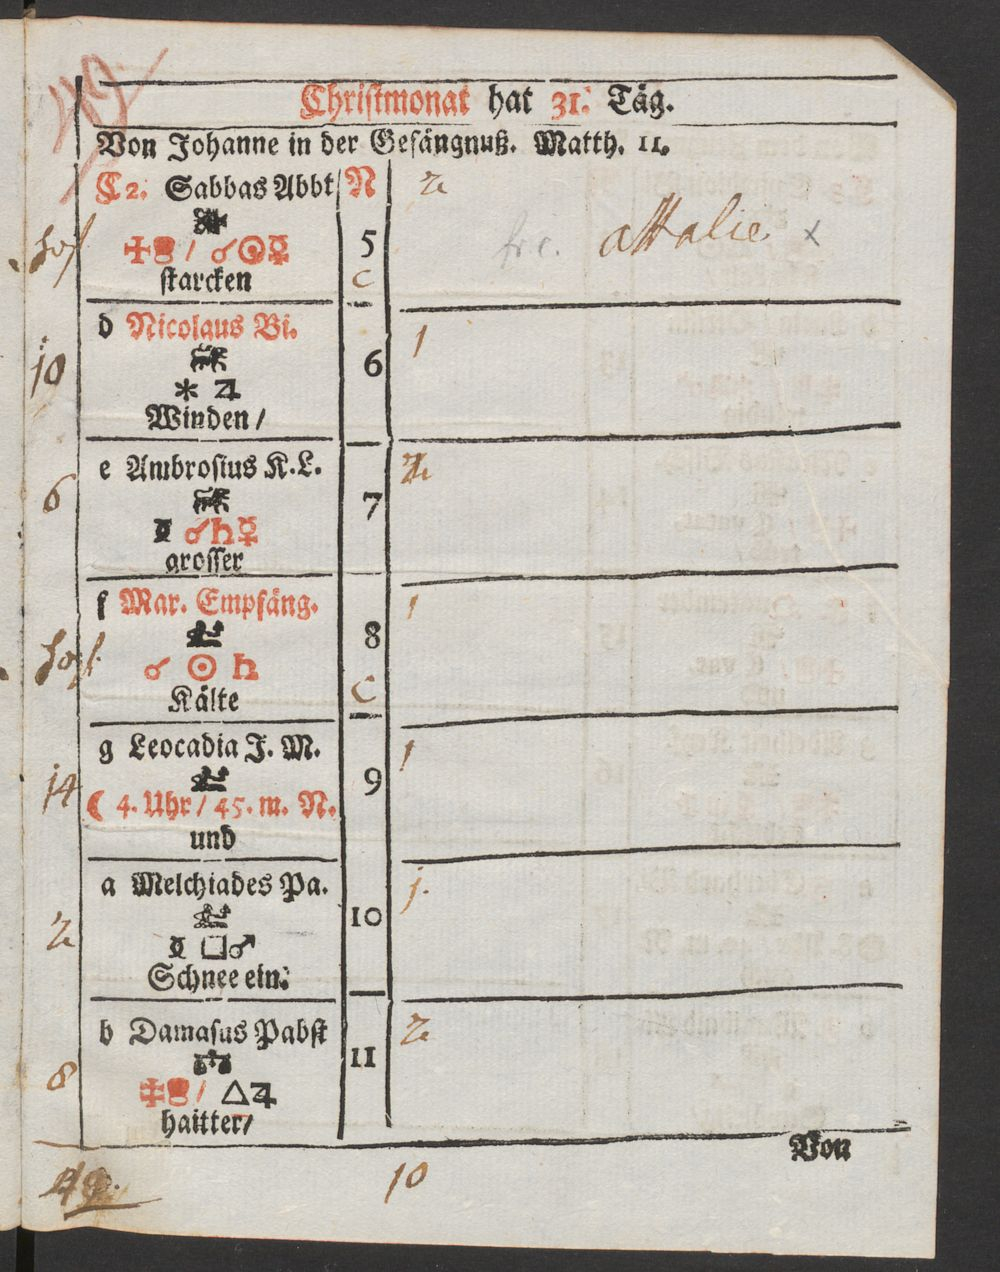 Christmonat hat 31. Täg.
Von Johanne in der Gefängnuß. Matth. 11.
C 2. Sabbas Abbt N 2
5 attalie x
☌☉☿
starcken C
d Nicolaus Bi. 1
10 6
✱ ♃
Winden /
e Ambrosius K.L. 2
6 7
☌♄☿
grosser
f Mar. Empfäng. 1
8
☌ ☉ ♄
Kälte C
g Leocadia J. M. 1
14 9
☾ 4. Uhr / 45. m. N.
und
a Melchiades Pa. 1.
2 10
□♂
Schnee ein.
b Damasus Pabst 2
11
8 △♃
haitter/
Von
49. 10